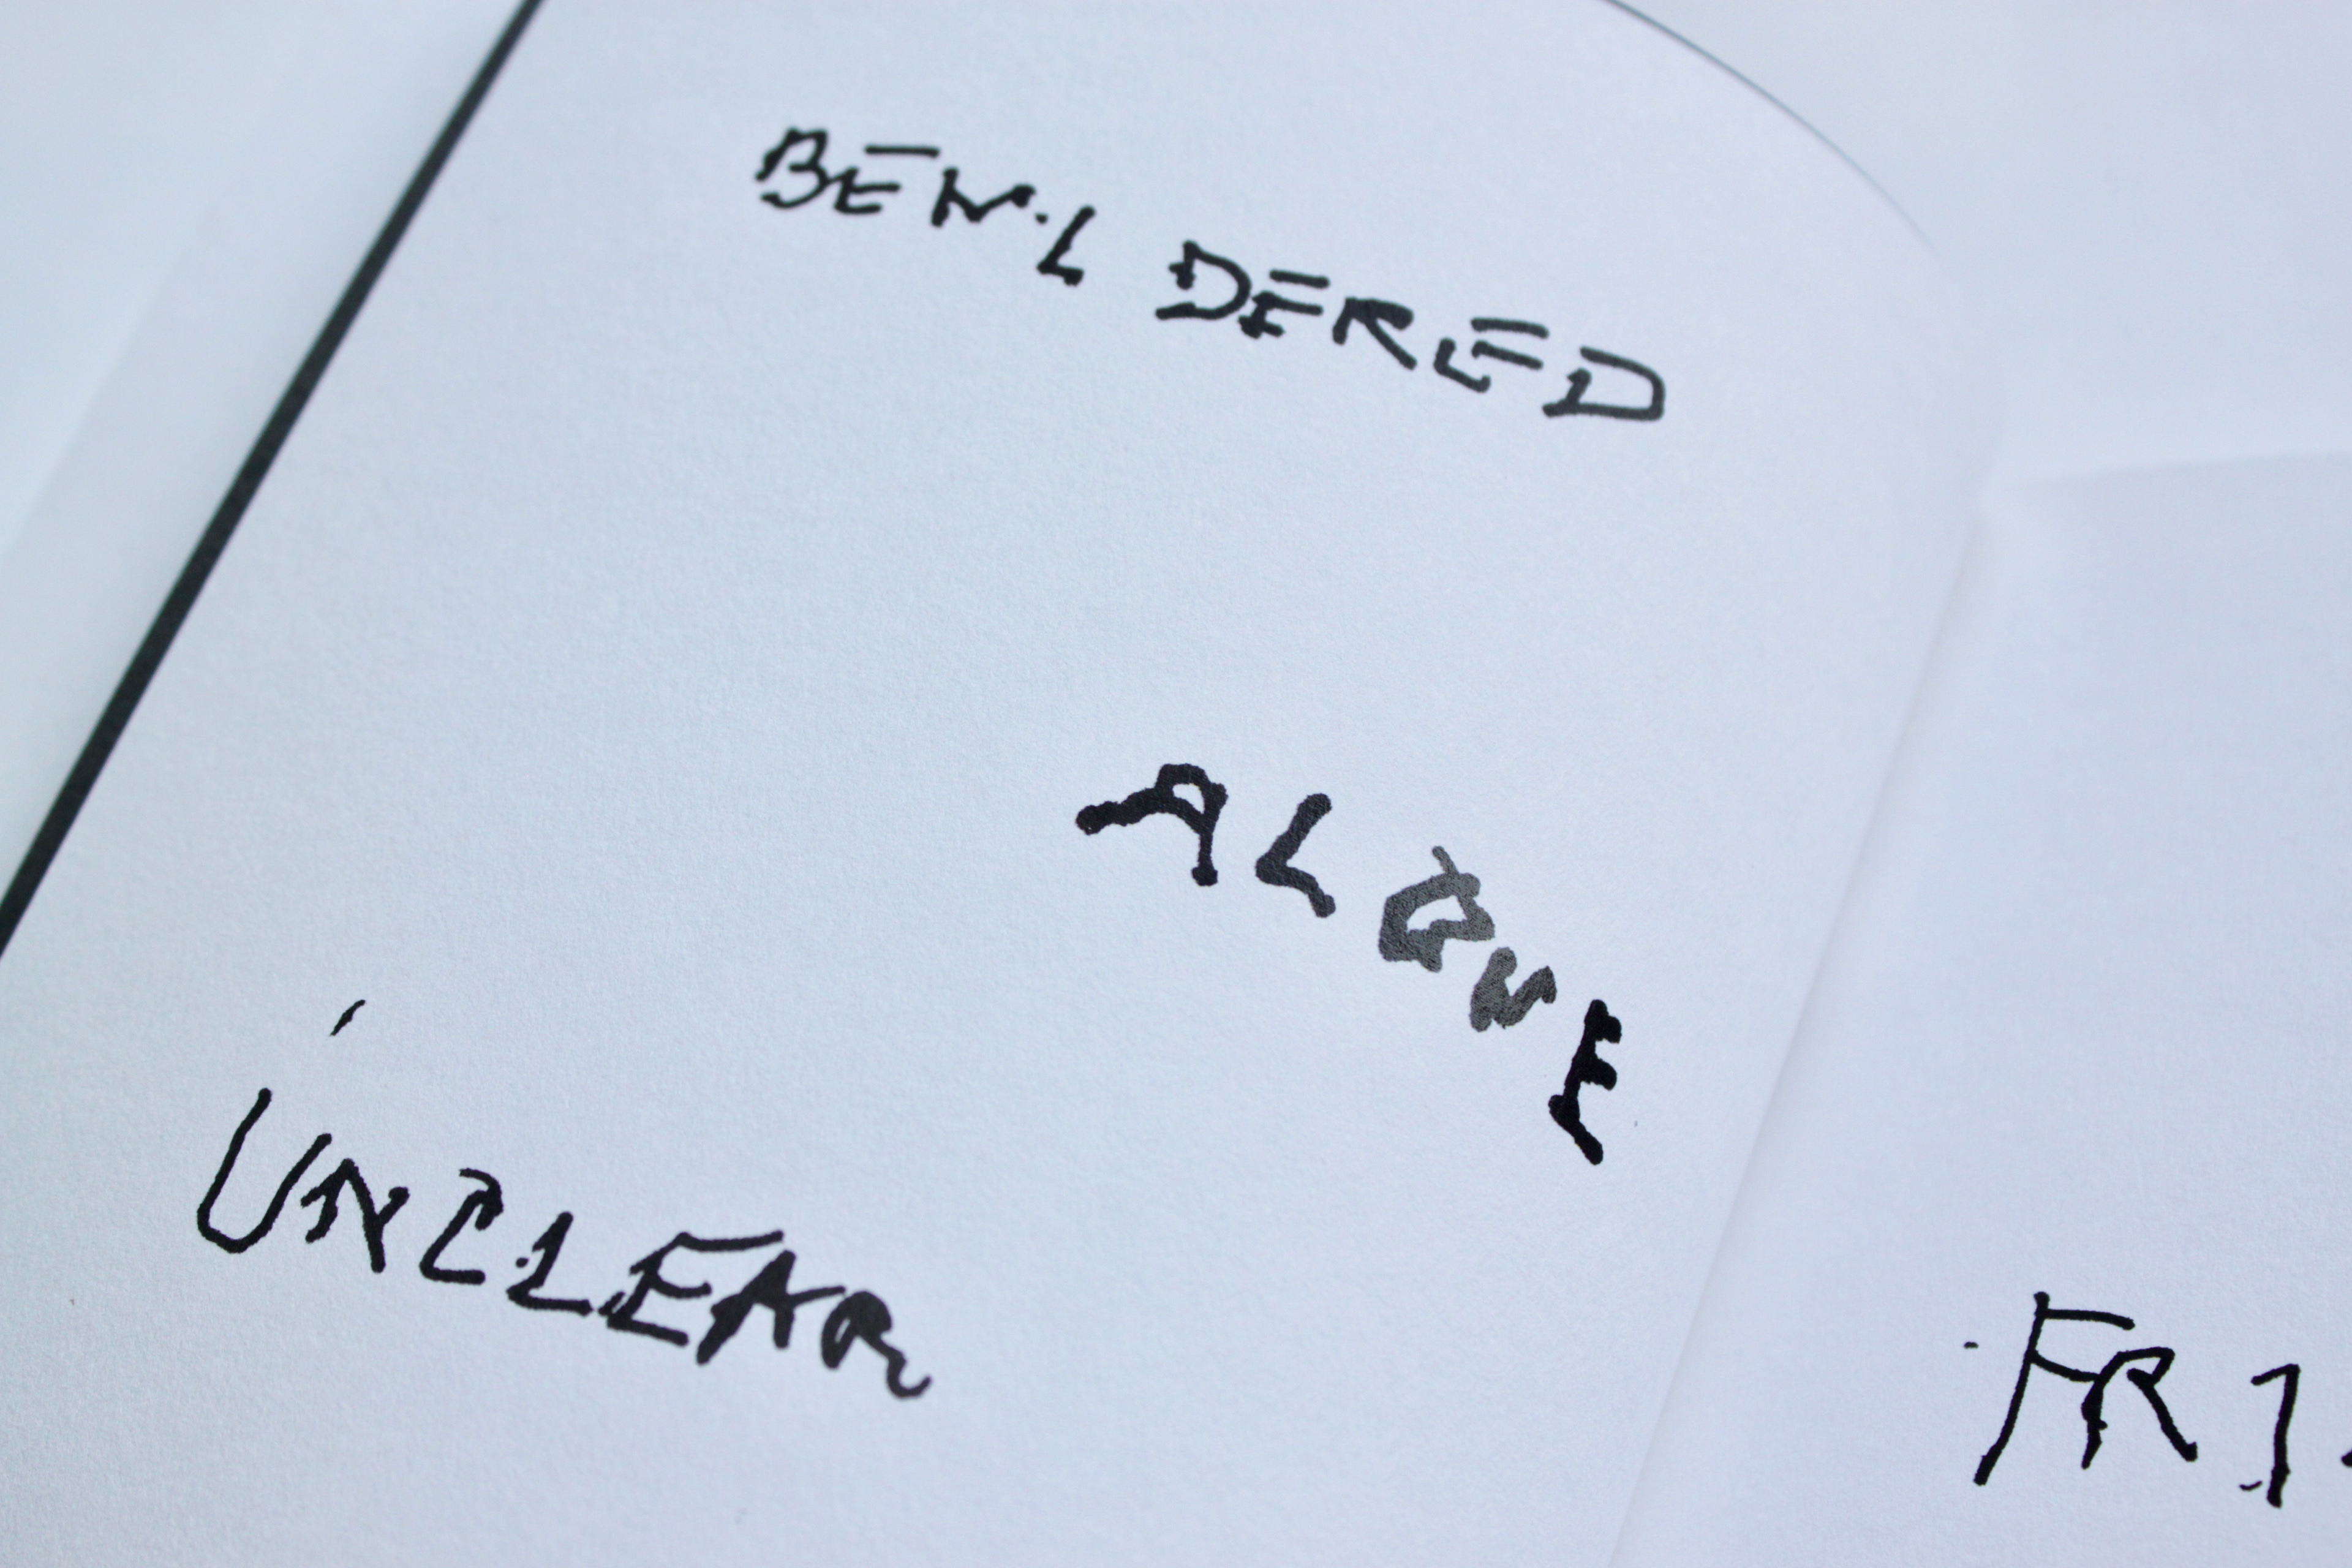 BEWILDERED
ALONE
UNCLEAR